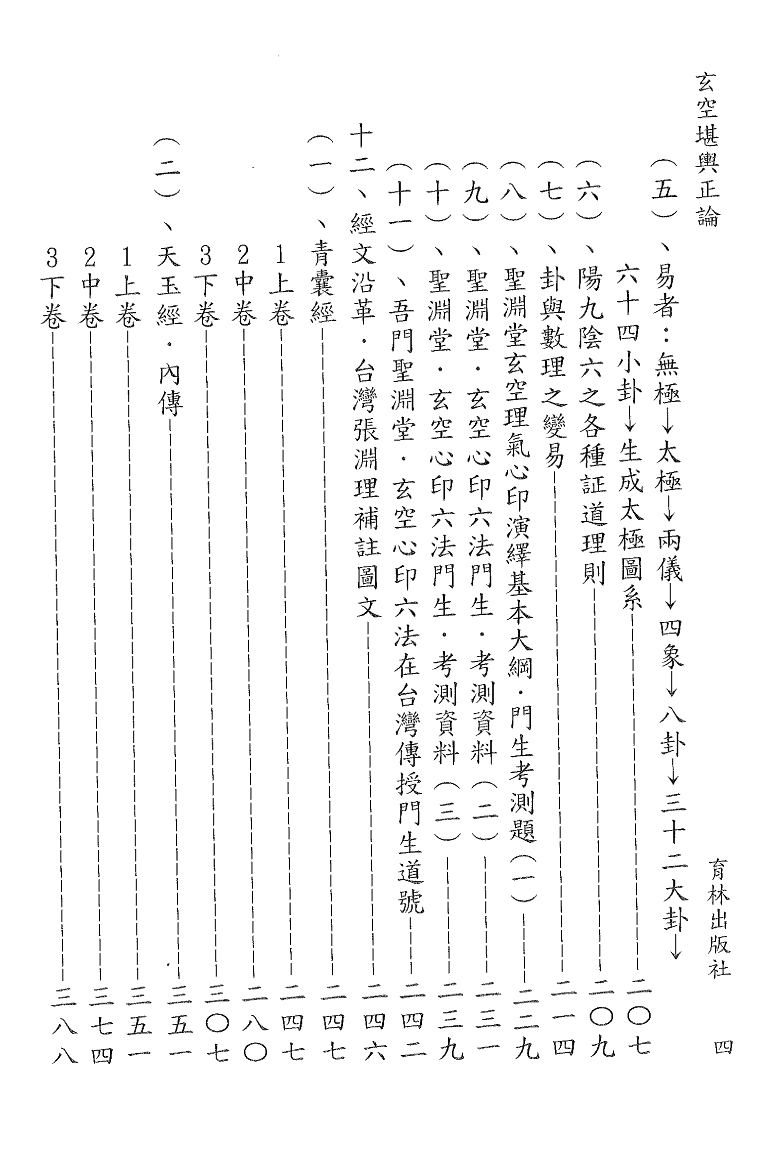 玄空堪輿正論
育林出版社 四
（五）、易者：無極→太極→兩儀→四象→八卦→三十二大卦→
六十四小卦→生成太極圖系——二〇七
（六）、陽九陰六之各種証道理則——二〇九
（七）、卦與數理之變易——二一四
（八）、聖淵堂玄空理氣心印演繹基本大綱．門生考測題（一）——二二九
（九）、聖淵堂．玄空心印六法門生．考測資料（二）——二三一
（十）、聖淵堂．玄空心印六法門生．考測資料（三）——二三九
（十一）、吾門聖淵堂．玄空心印六法在台灣傳授門生道號——二四二
十二、經文沿革．台灣張淵理補註圖文——二四六
（一）、青囊經——二四七
1上卷——二四七
2中卷——二八〇
3下卷——三〇七
（二）、天玉經．內傳——三五一
1上卷——三五一
2中卷——三七四
3下卷——三八八